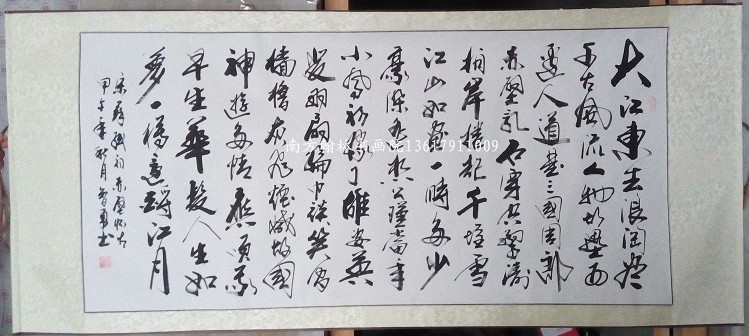 大江東去浪淘盡
千古風流人物故壘西
邊人道是三國周郎
赤壁亂石穿空驚濤
拍岸捲起千堆雪
江山如畫一時多少
豪傑遙想公瑾當年
小喬初嫁了雄姿英
發羽扇綸巾談笑間
檣櫓灰飛煙滅故國
神遊多情應笑我
早生華髮人生如
夢一樽還酹江月
宋蘇軾詞赤壁懷古
甲午年秋月 曾勇書
南方翰林书画院13617911009